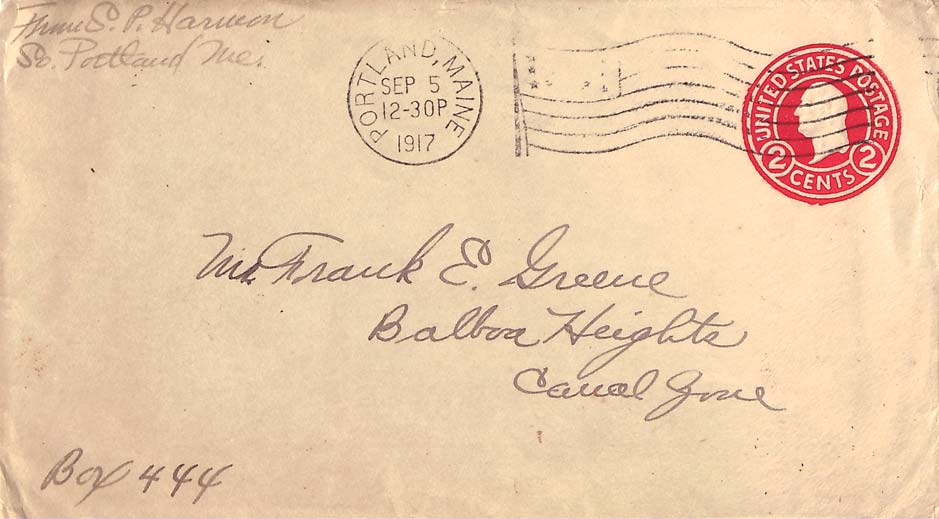 From S. P. Harmon
So. Portland Me.
PORTLAND, MAINE
SEP 5
12-30P
1917
UNITED STATES POSTAGE
2 CENTS 2
Mr. Frank E. Greene
Balboa Heights
Canal Zone
Box 444